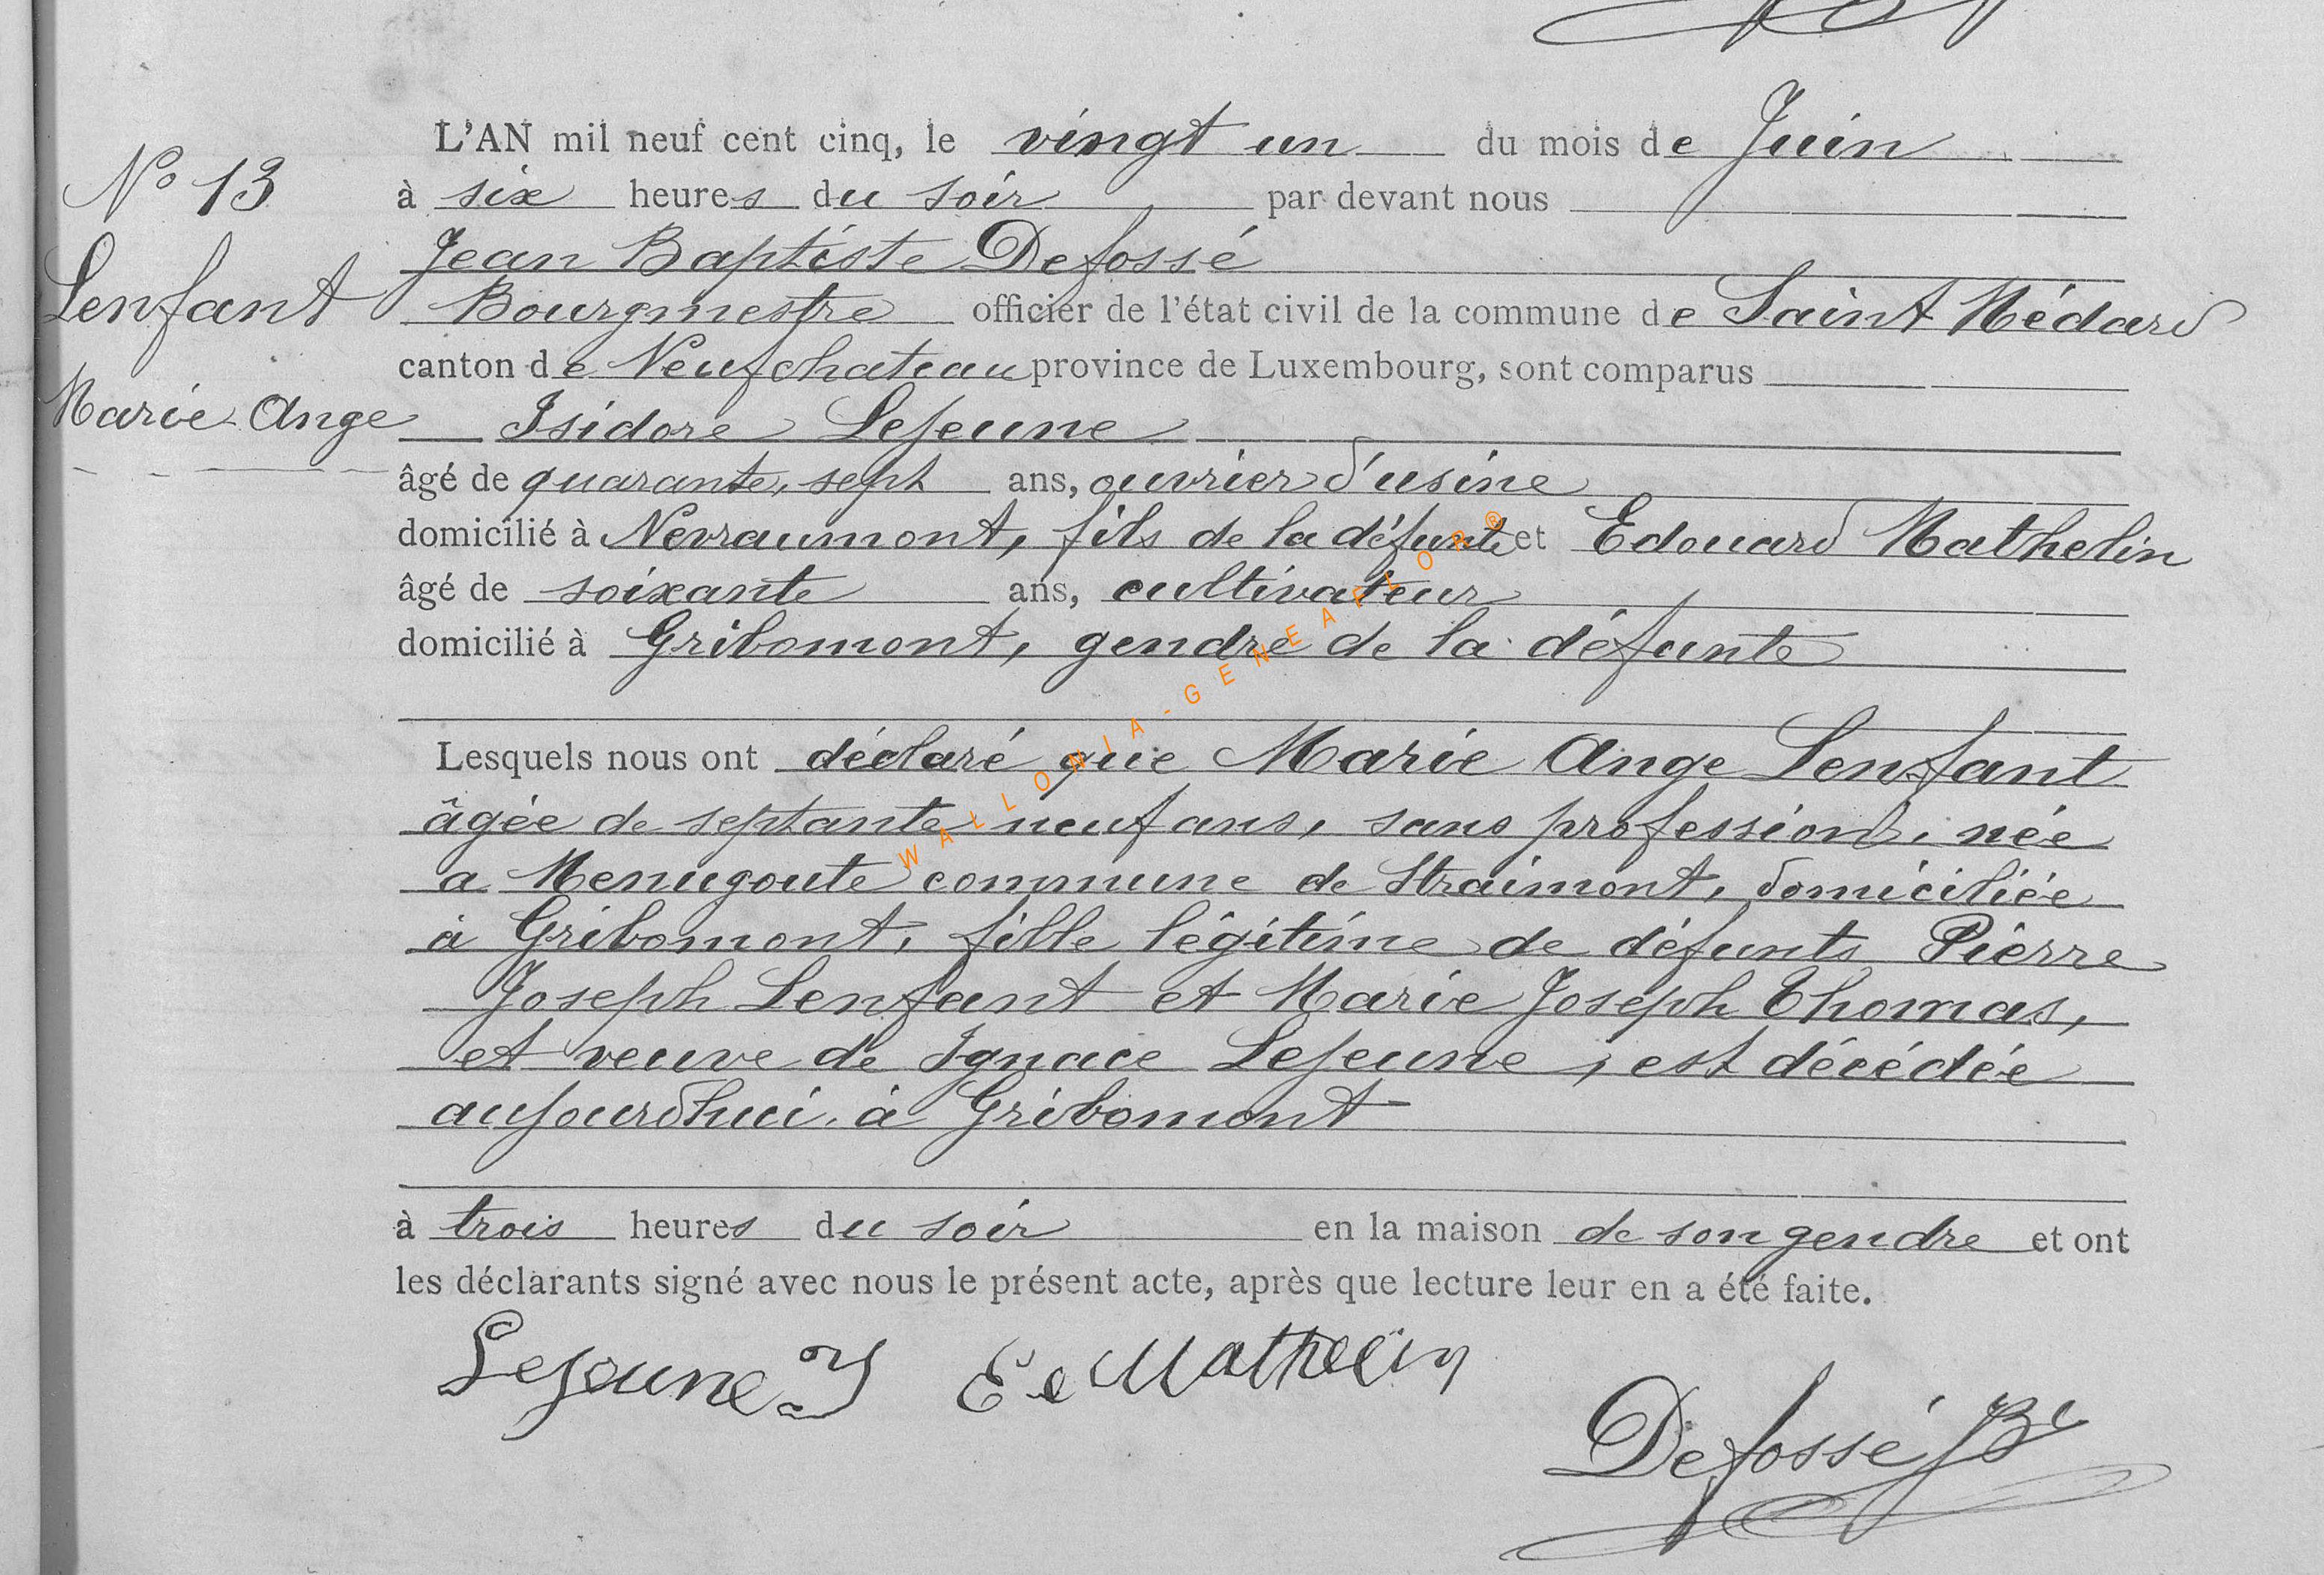 L'AN mil neuf cent cinq, le vingt un du mois de Juin
N° 13
à six heures du soir par devant nous
Jean Baptiste Defossé
Lenfant
Bourgmestre officier de l'état civil de la commune de Saint Médard
canton de Neufchateau province de Luxembourg, sont comparus
Marie Ange
Isidore Lejeune
âgé de quarante, sept ans, ouvrier d'usine
domicilié à Nevraumont, fils de la défunte et Edouard Mathelin
âgé de soixante ans, cultivateur
domicilié à Gribomont, gendre de la défunte
Lesquels nous ont déclaré que Marie Ange Lenfant
âgée de septante neuf ans, sans profession, née
a Menugoute commune de Straimont, domiciliée
à Gribomont, fille légitime de défunts Pierre
Joseph Lenfant et Marie Joseph Thomas,
et veuve de Ignace Lejeune, est décédée
aujourdhui à Gribomont
à trois heures du soir en la maison de son gendre et ont
les déclarants signé avec nous le présent acte, après que lecture leur en a été faite.
Lejeune I E Mathelin
Defossé JBte
WALLONIA-GENEAFLOR®